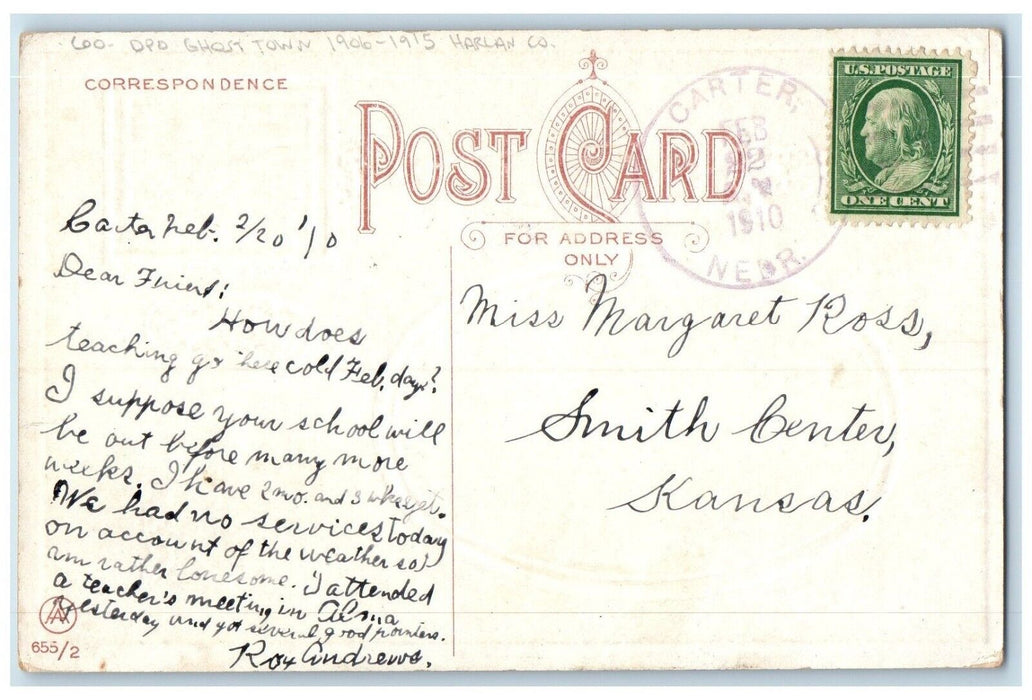 600- DPO GHOST TOWN 1906-1915 HARLAN CO.
CORRESPONDENCE
POST CARD
FOR ADDRESS
ONLY
CARTER,
FEB
22
1910
NEBR.
U.S. POSTAGE
ONE CENT
Carter Neb. 2/20 '10
Dear Friend:
How does
teaching go these cold Feb. days?
I suppose your school will
be out before many more
weeks. I have 2 mo. and 3 wks yet.
We had no services today
on account of the weather so I
am rather lonesome. I attended
a teacher's meeting in Alma
yesterday and got several good pointers.
Roy Andrews.
Miss Margaret Ross,
Smith Center,
Kansas.
AA
655/2